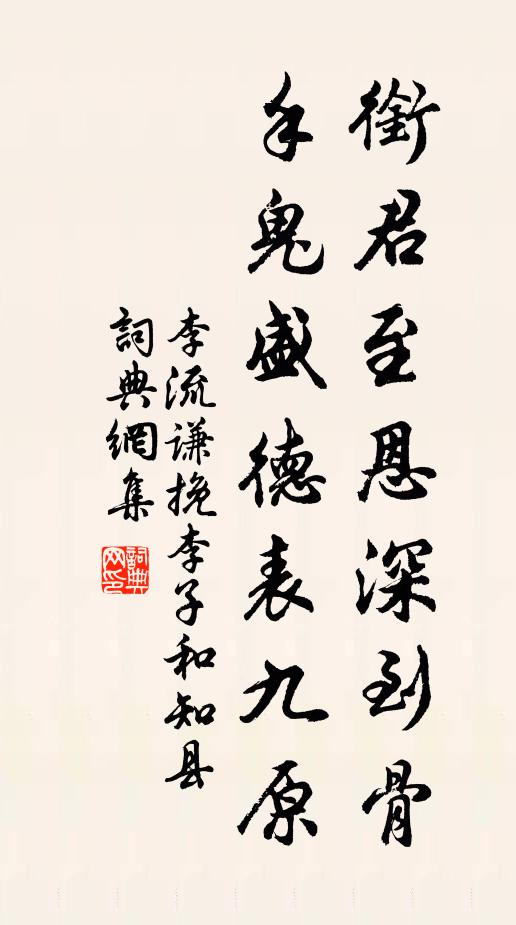 銜君至恩深到骨
手鬼盛德表九原
李流谦挽李子和知县
詞典網集
詞典网印